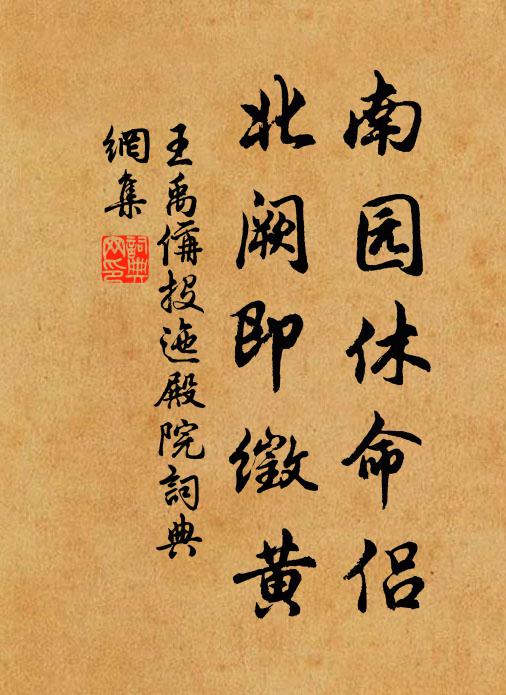 南园休命侣
北阙即徵黄
王禹偁投迤殿院詞典
網集
詞典
网印